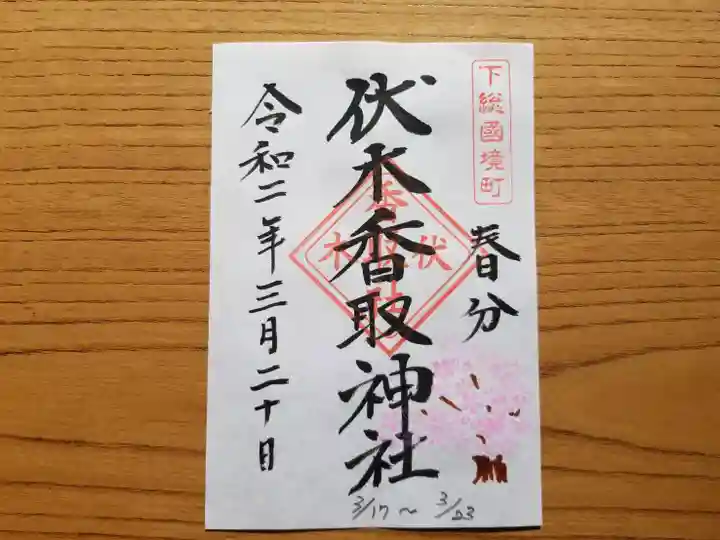 下総國境町
春分
伏木香取神社
伏木
香取
令和二年三月二十日
3/17～3/23